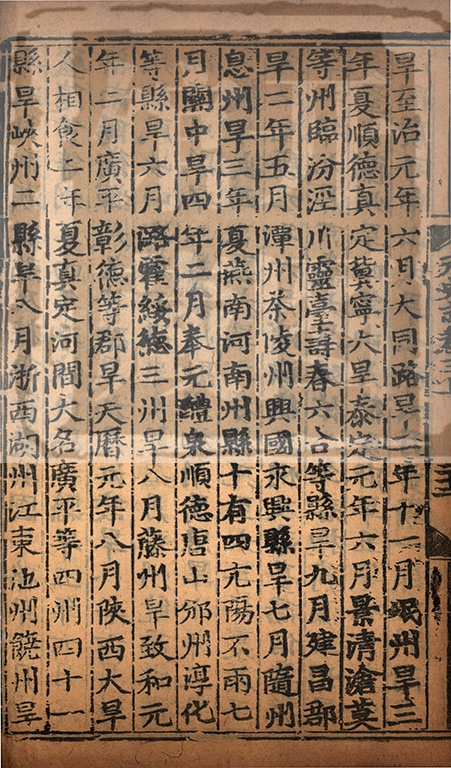 旱至治元年六日大同路旱二年十一月岷州旱三
年夏順德真定冀寧大旱泰定元年六月景清滄莫
等州臨汾涇川靈臺壽春六合等縣旱九月建昌郡
旱二年五月潭州茶陵州興國永興縣旱七月隨州
息州旱三年夏燕南河南州縣十有四亢陽不雨七
月關中旱四年二月奉元醴泉順德唐山邠州淳化
等縣旱六月潞霍綏德三州旱八月藤州旱致和元
年二月廣平彰德等郡旱天曆元年八月陝西大旱
人相食二年夏真定河間大名廣平等四州四十一
縣旱峽州二縣旱八月浙西湖州江東池州饒州旱